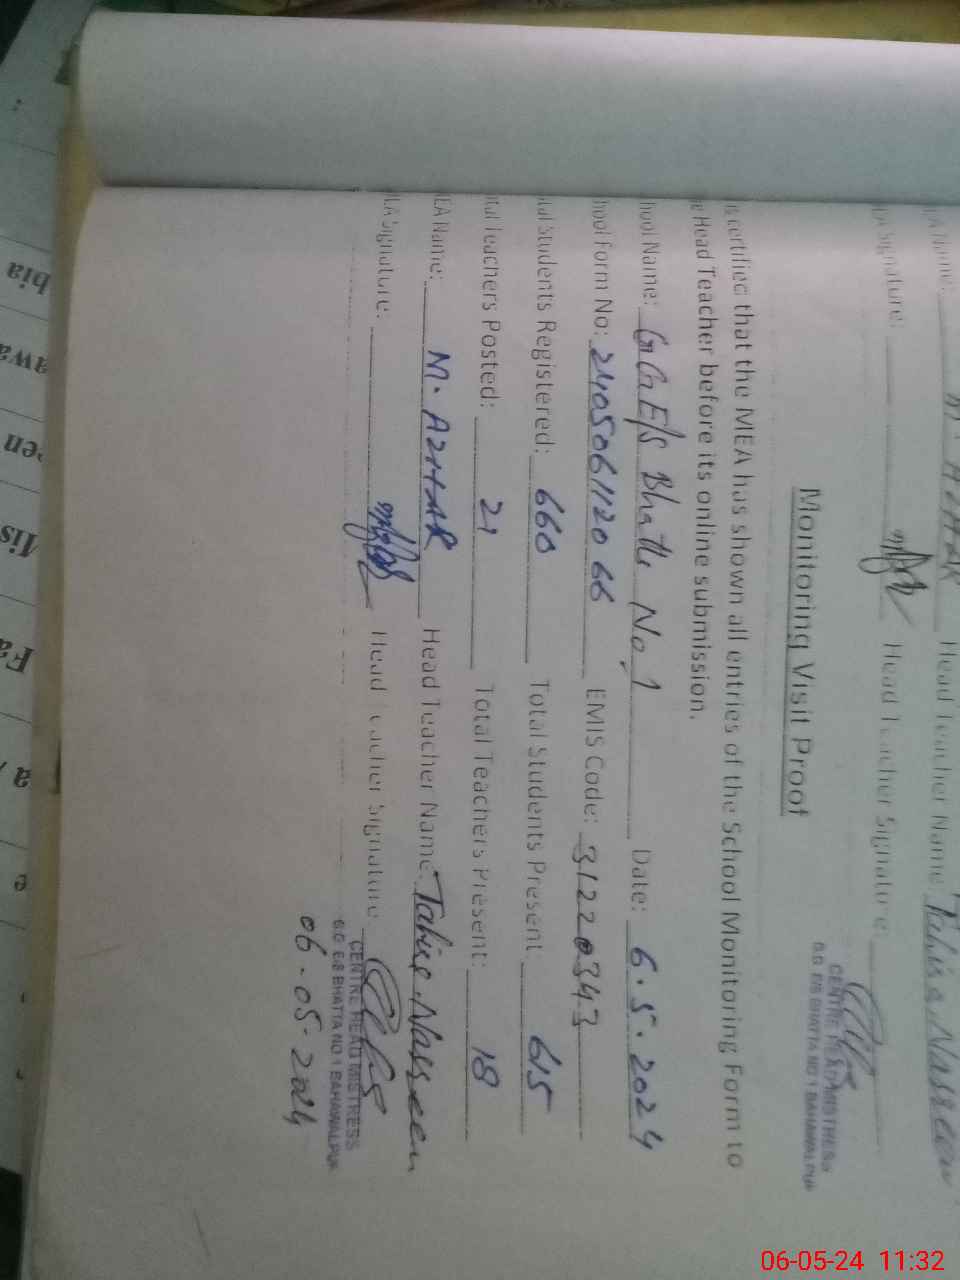 Head Teacher Name: Tahira Nasreen
Signature:
Head Teacher Signature:
CENTRE HEAD MISTRESS
G.G E/S BHATTA NO 1 BAHAWALPUR
Monitoring Visit Proof
certified that the MEA has shown all entries of the School Monitoring Form to
Head Teacher before its online submission.
Name: GGE/S Bhatta No, 1 Date: 6.5.2024
Form No: 24050611 20 66 EMIS Code: 31220343
Students Registered: 660 Total Students Present 615
Teachers Posted: 21 Total Teachers Present: 18
Name: M. AZHAR Head Teacher Name: Tahira Nasreen
Signature: Head Teacher Signature
CENTRE HEAD MISTRESS
G.G E/S BHATTA NO 1 BAHAWALPUR
06.05.2024
bia
awa
en
Mis
Fa
a
e
06-05-24 11:32